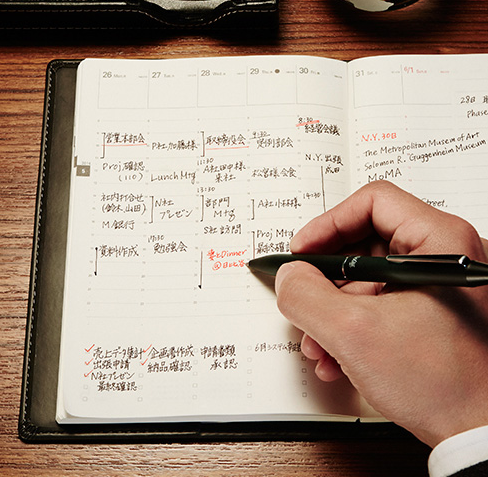 26
27
28
29
30
31
6/1
営業本部会
P社加藤様
取締役会
9:30
定例部会
8:30
経営会議
Proj.確認
(110)
Lunch Mtg
11:30
A社田中様
来社
N.Y.出張
成田
社内打合せ
(鈴木,山田)
M.銀行
N社
プレゼン
13:30
部門
Mtg
A社小林様
14:30
S社訪問
資料作成
17:30
勉強会
Proj Mtg
最終確認
妻とDinner
5
28日
Phase
N.Y. 30日
The Metropolitan Museum of Art
Solomon R. Guggenheim Museum
MoMA
Street,
売上データ集計
出張申請
N社プレゼン
最終確認
企画書作成
納品確認
申請書類
承認
6月システム